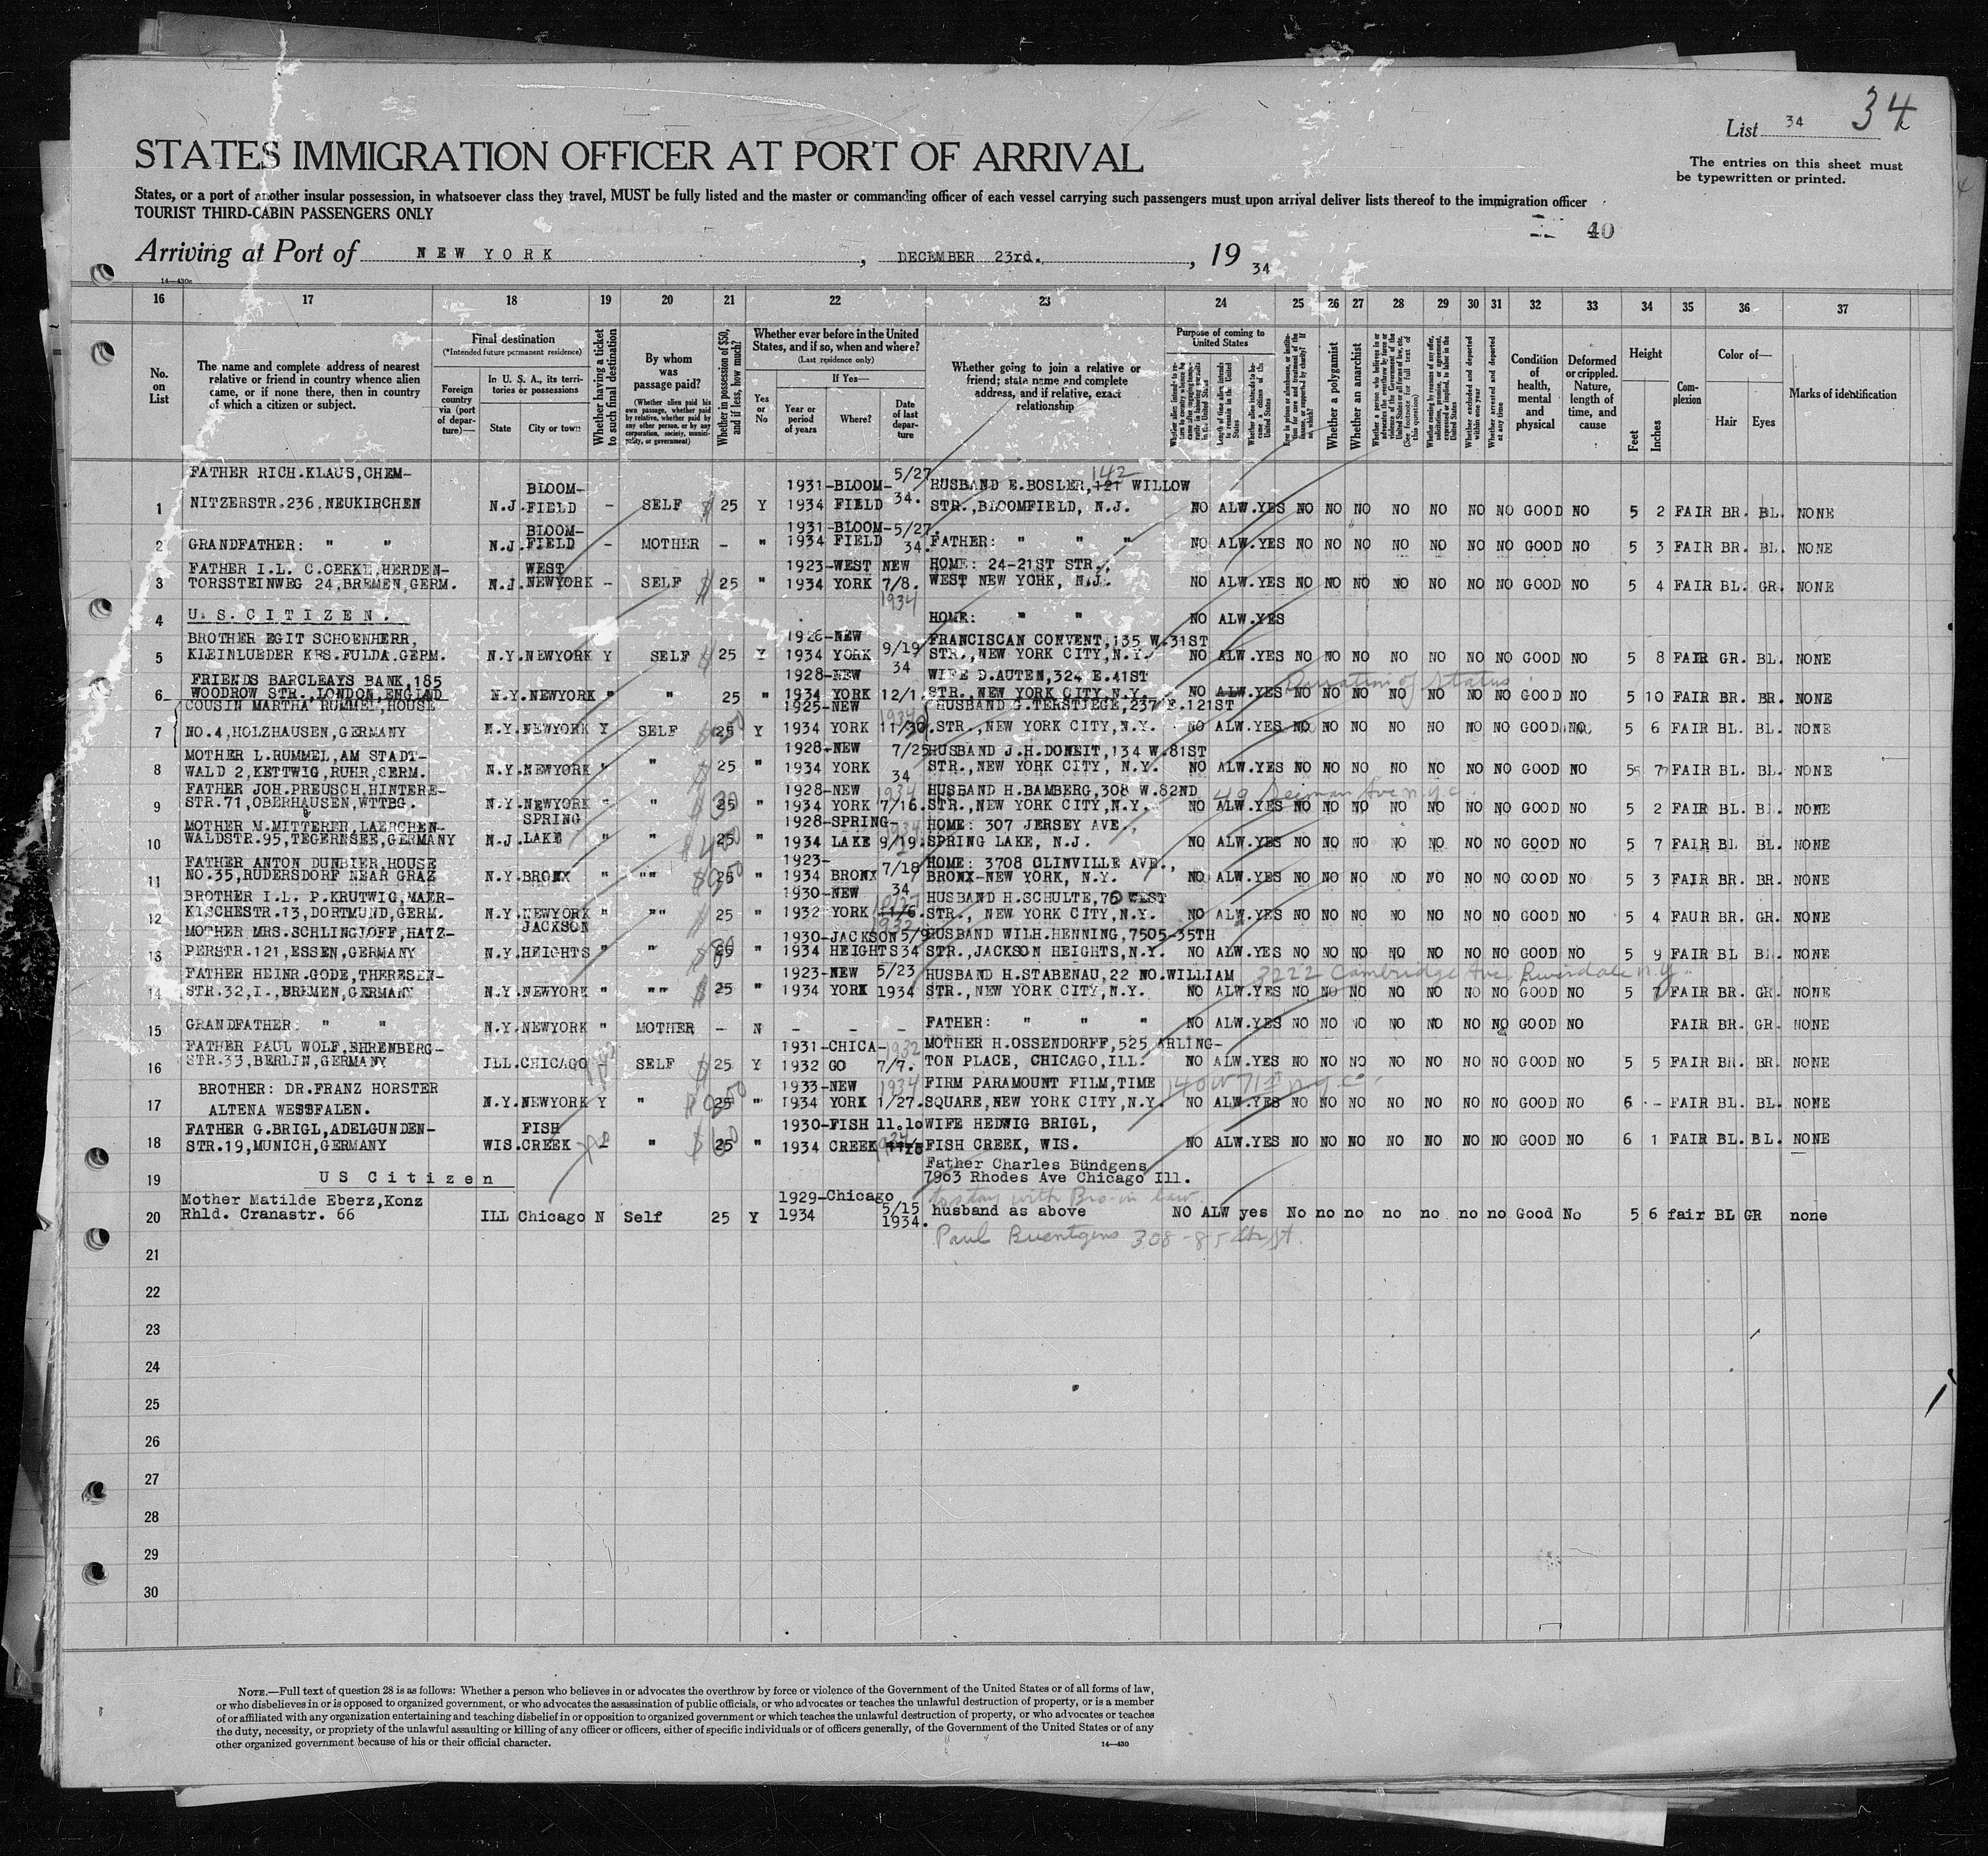 34
List 34
STATES IMMIGRATION OFFICER AT PORT OF ARRIVAL
The entries on this sheet must
be typewritten or printed.
States, or a port of another insular possession, in whatsoever class they travel, MUST be fully listed and the master or commanding officer of each vessel carrying such passengers must upon arrival deliver lists thereof to the immigration officer
TOURIST THIRD-CABIN PASSENGERS ONLY
40
Arriving at Port of NEW YORK, DECEMBER 23rd., 19 34
14—430c
16 17 18 19 20 21 22 23 24 25 26 27 28 29 30 31 32 33 34 35 36 37
No. on List
The name and complete address of nearest relative or friend in country whence alien came, or if none there, then in country of which a citizen or subject.
Final destination
(*Intended future permanent residence)
Foreign country via (port of departure)—
In U. S. A., its territories or possessions
State
City or town
Whether having a ticket to such final destination
By whom was passage paid?
(Whether alien paid his own passage, whether paid by relative, whether paid by any other person, or by any corporation, society, municipality, or government)
Whether in possession of $50, and if less, how much?
Whether ever before in the United States, and if so, when and where?
(Last residence only)
Yes or No
If Yes—
Year or period of years
Where?
Date of last departure
Whether going to join a relative or friend; state name and complete address, and if relative, exact relationship
Purpose of coming to United States
Length of time alien intends to remain in the United States
Whether alien intends to become a citizen of the United States
Whether a polygamist
Whether an anarchist
(See footnote for full text of this question)
Whether excluded and deported within one year
Whether arrested and deported at any time
Condition of health, mental and physical
Deformed or crippled. Nature, length of time, and cause
Height
Feet
Inches
Complexion
Color of—
Hair
Eyes
Marks of identification
FATHER RICH.KLAUS,CHEM- BLOOM- 1931-BLOOM- 5/27 142
1 NITZERSTR.236,NEUKIRCHEN N.J. FIELD – SELF $ 25 Y 1934 FIELD 34. HUSBAND E.BOSLER,121 WILLOW
STR.,BLOOMFIELD, N.J. NO ALW.YES NO NO NO NO NO NO NO GOOD NO 5 2 FAIR BR. BL. NONE
BLOOM- 1931-BLOOM-5/27.
2 GRANDFATHER: " " N.J. FIELD – MOTHER – " 1934 FIELD 34. FATHER: " " " NO ALW.YES NO NO NO NO NO NO NO GOOD NO 5 3 FAIR BR. BL. NONE
FATHER I.L. C.GERKE,HERDEN- WEST 1923-WEST NEW HOME: 24-21ST STR.,
3 TORSSTEINWEG 24,BREMEN,GERM. N.J. NEWYORK – SELF $ 25 " 1934 YORK 7/8. WEST NEW YORK, N.J. NO ALW.YES NO NO NO NO NO NO NO GOOD NO 5 4 FAIR BL. GR. NONE
1934
4 U.S.CITIZEN. HOME: " " NO ALW.YES
BROTHER EGIT SCHOENHERR, 1926-NEW FRANCISCAN CONVENT,135 W.31ST
5 KLEINLUEDER KRS.FULDA.GERM. N.Y. NEWYORK Y SELF 25 Y 1934 YORK 9/19 34 STR.,NEW YORK CITY,N.Y. NO ALW.YES NO NO NO NO NO NO NO GOOD NO 5 8 FAIR GR. BL. NONE
FRIENDS BARCLEAYS BANK,185 1928-NEW WIFE D.AUTEN,324 E.41ST
6 WOODROW STR.,LONDON,ENGLAND N.Y. NEWYORK " " 25 " 1934 YORK 12/1. STR.,NEW YORK CITY,N.Y. NO ALW.YES NO NO NO NO NO NO NO GOOD NO 5 10 FAIR BR. BR. NONE
COUSIN MARTHA RUMMEL,HOUSE 1925-NEW 1934 HUSBAND G.TERSTIEGE,237 E.121ST
7 NO.4,HOLZHAUSEN,GERMANY N.Y. NEWYORK Y SELF 25 Y 1934 YORK 11/30. STR.,NEW YORK CITY,N.Y. NO ALW.YES NO NO NO NO NO NO NO GOOD NO 5 6 FAIR BL. BL. NONE
MOTHER L.RUMMEL,AM STADT- 1928-NEW 7/25 HUSBAND J.H.DONEIT,134 W.81ST
8 WALD 2,KETTWIG,RUHR,GERM. N.Y. NEWYORK " " 25 " 1934 YORK 34 STR.,NEW YORK CITY, N.Y. NO ALW.YES NO NO NO NO NO NO NO GOOD NO 5 7 FAIR BL. BL. NONE
FATHER JOH.PREUSCH,HINTERE- 1928-NEW 1934 HUSBAND H.BAMBERG,308 W.82ND
9 STR.71,OBERHAUSEN,WTTBG. N.Y. NEWYORK " " 25 " 1934 YORK 7/16. STR.,NEW YORK CITY,N.Y. NO ALW.YES NO NO NO NO NO NO NO GOOD NO 5 2 FAIR BL. BL. NONE
MOTHER M.MITTERER,LAERCHEN- SPRING 1928-SPRING- 1934 HOME: 307 JERSEY AVE.,
10 WALDSTR.95,TEGERNSEE,GERMANY N.J. LAKE " " 25 " 1934 LAKE 9/19. SPRING LAKE, N.J. NO ALW.YES NO NO NO NO NO NO NO GOOD NO 5 7 FAIR BL BL. NONE
FATHER ANTON DUNBIER,HOUSE 1923- 7/18 HOME: 3708 CLINVILLE AVE.,
11 NO.35,RUDERSDORF NEAR GRAZ N.Y. BRONX " "" 25 " 1934 BRONX 34 BRONX-NEW YORK, N.Y. NO ALW.YES NO NO NO NO NO NO NO GOOD NO 5 3 FAIR BR. BR. NONE
BROTHER I.L. P.KRUTWIG,MAER- 1930-NEW HUSBAND H.SCHULTE,76 WEST
12 KISCHESTR.13,DORTMUND,GERM. N.Y. NEWYORK " "" 25 " 1932 YORK 11/6. STR., NEW YORK CITY,N.Y. NO ALW.YES NO NO NO NO NO NO NO GOOD NO 5 4 FAUR BR. GR. NONE
MOTHER MRS.SCHLINGLOFF,HATZ- JACKSON 1930-JACKSON 5/9 HUSBAND WILH.HENNING,7505-35TH
13 PERSTR.121,ESSEN,GERMANY N.Y. HEIGHTS " " 25 " 1934 HEIGHTS 34 STR.,JACKSON HEIGHTS,N.Y. NO ALW.YES NO NO NO NO NO NO NO GOOD NO 5 9 FAIR BL BL. NONE
FATHER HEINR.GODE,THERESEN- 1923-NEW 5/23 HUSBAND H.STABENAU,22 NO.WILLIAM 3222 Cambridge Ave Riverdale N.Y.
14 STR.32,I.,BREMEN,GERMANY N.Y. NEWYORK " "" $ 25 " 1934 YORK 1934 STR.,NEW YORK CITY,N.Y. NO ALW.YES NO NO NO NO NO NO NO GOOD NO 5 7 FAIR BR. GR. NONE
15 GRANDFATHER: " " N.Y. NEWYORK " MOTHER – N – – – FATHER: " " " NO ALW.YES NO NO NO NO NO NO NO GOOD NO FAIR BR. GR. NONE
FATHER PAUL WOLF,EHRENBERG- 1931-CHICA- 1932 MOTHER H.OSSENDORFF,525 ARLING-
16 STR.33,BERLIN,GERMANY ILL. CHICAGO SELF $ 25 Y 1932 GO 7/7. TON PLACE, CHICAGO,ILL. NO ALW.YES NO NO NO NO NO NO NO GOOD NO 5 5 FAIR BR. BR. NONE
BROTHER: DR.FRANZ HORSTER 1933-NEW 1934 FIRM PARAMOUNT FILM,TIME 140 W 71 St N.Y.C.
17 ALTENA WESTFALEN. N.Y. NEWYORK Y " 25 " 1934 YORK 1/27. SQUARE,NEW YORK CITY,N.Y. NO ALW.YES NO NO NO NO NO NO NO GOOD NO 6 – FAIR BL. BL. NONE
FATHER G.BRIGL,ADELGUNDEN- FISH 1930-FISH 11.10 WIFE HEDWIG BRIGL,
18 STR.19,MUNICH,GERMANY WIS. CREEK – " 25 " 1934 CREEK 1934 FISH CREEK, WIS. NO ALW.YES NO NO NO NO NO NO NO GOOD NO 6 1 FAIR BL. BL. NONE
Father Charles Bündgens
19 US Citizen 7963 Rhodes Ave Chicago Ill.
Mother Matilde Eberz,Konz 1929-Chicago to stay with Bro-in law.
20 Rhld. Cranastr. 66 ILL Chicago N Self 25 Y 1934 5/15 1934. husband as above NO ALW yes No no no no no no no Good No 5 6 fair BL GR none
Paul Buentgens 308-85th St.
21
22
23
24
25
26
27
28
29
30
NOTE.—Full text of question 28 is as follows: Whether a person who believes in or advocates the overthrow by force or violence of the Government of the United States or of all forms of law,
or who disbelieves in or is opposed to organized government, or who advocates the assassination of public officials, or who advocates or teaches the unlawful destruction of property, or is a member
of or affiliated with any organization entertaining and teaching disbelief in or opposition to organized government or which teaches the unlawful destruction of property, or who advocates or teaches
the duty, necessity, or propriety of the unlawful assaulting or killing of any officer or officers, either of specific individuals or of officers generally, of the Government of the United States or of any
other organized government because of his or their official character.
14—430